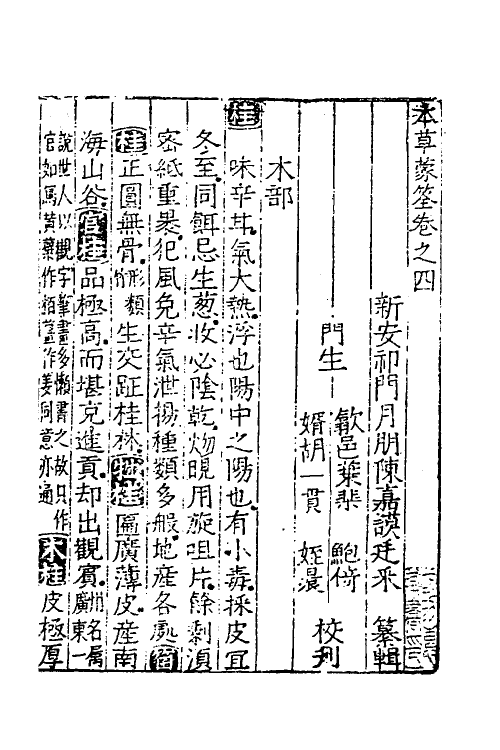 本草蒙筌卷之四
新安祁門月朋陳嘉謨廷采 纂輯
歙邑葉棐 鮑倚
門生 校刋
婿胡一貫 姪
木部
桂 味辛甘氣大熱浮也陽中之陽也有小毒採皮宜
冬至同餌忌生葱收必陰乾勿晛用旋咀片餘剩湏
密紙重裹犯風免辛氣泄揚種類多般地産各處菌
桂正圓無骨形類竹生交趾桂林桂匾廣薄皮産南
海山谷官桂品極高而堪充進貢却出觀賔州名屬廣東一
説世人以觀字筆畫多懶書之故只作官如馬黄蘗作栢薑作姜同意亦通木桂皮極厚